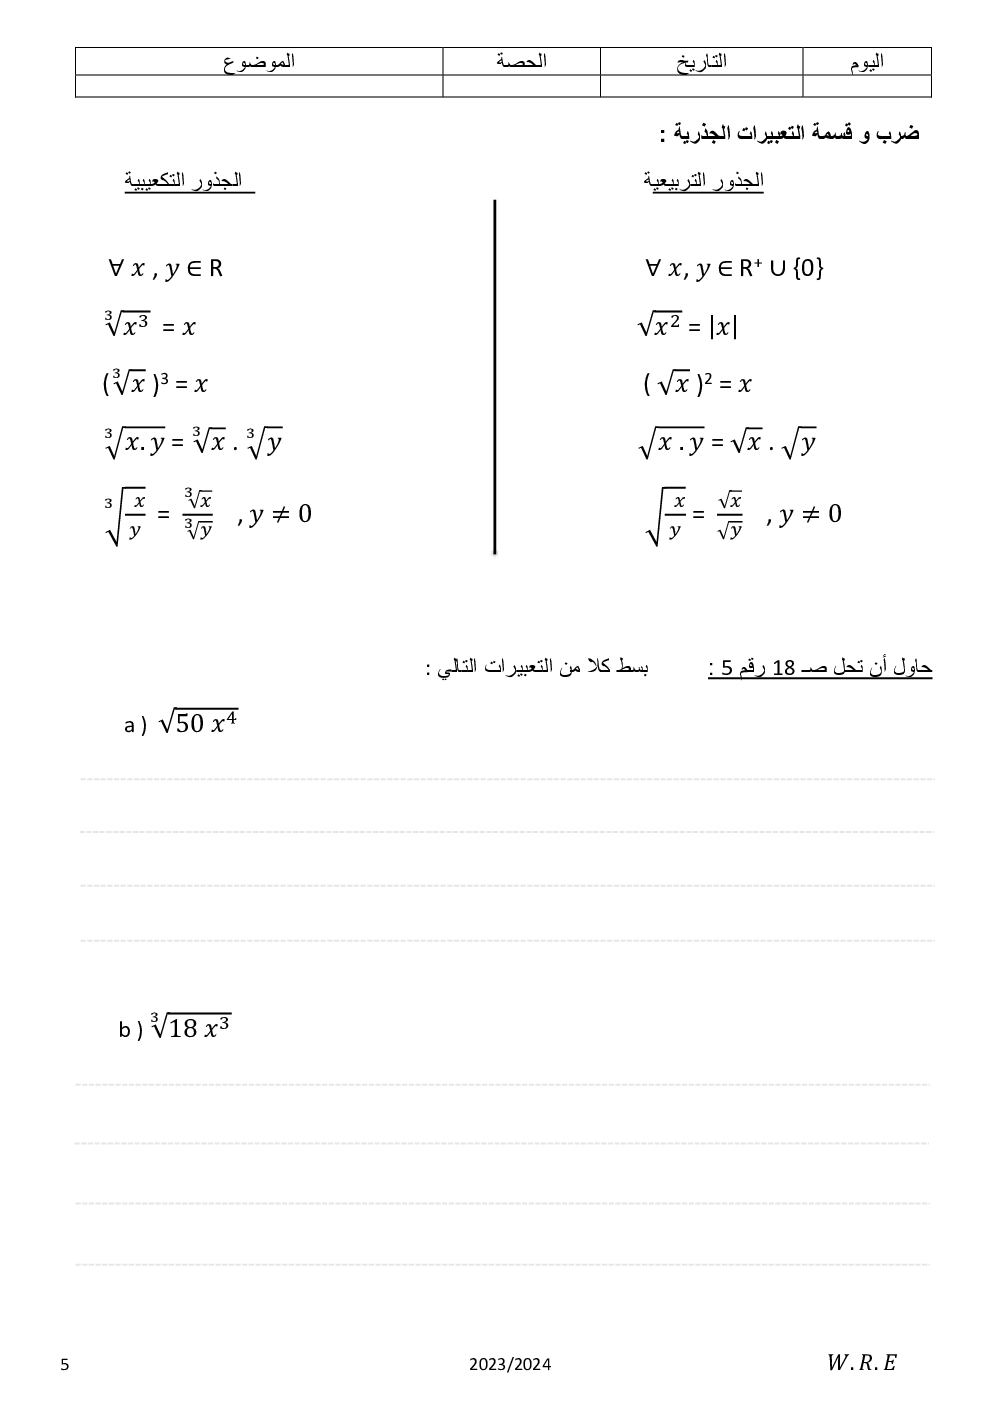 اليوم التاريخ الحصة الموضوع
ضرب و قسمة التعبيرات الجذرية :
الجذور التربيعية
∀ x, y ∈ R⁺ ∪ {0}
√(x²) = |x|
( √x )² = x
√(x . y) = √x . √y
√(x/y) = √x/√y , y ≠ 0
الجذور التكعيبية
∀ x , y ∈ R
∛(x³) = x
(∛x )³ = x
∛(x. y) = ∛x . ∛y
∛(x/y) = ∛x/∛y , y ≠ 0
حاول أن تحل صـ 18 رقم 5 : بسط كلا من التعبيرات التالي :
a ) √(50 x⁴)
b ) ∛(18 x³)
5 2023/2024 W.R.E